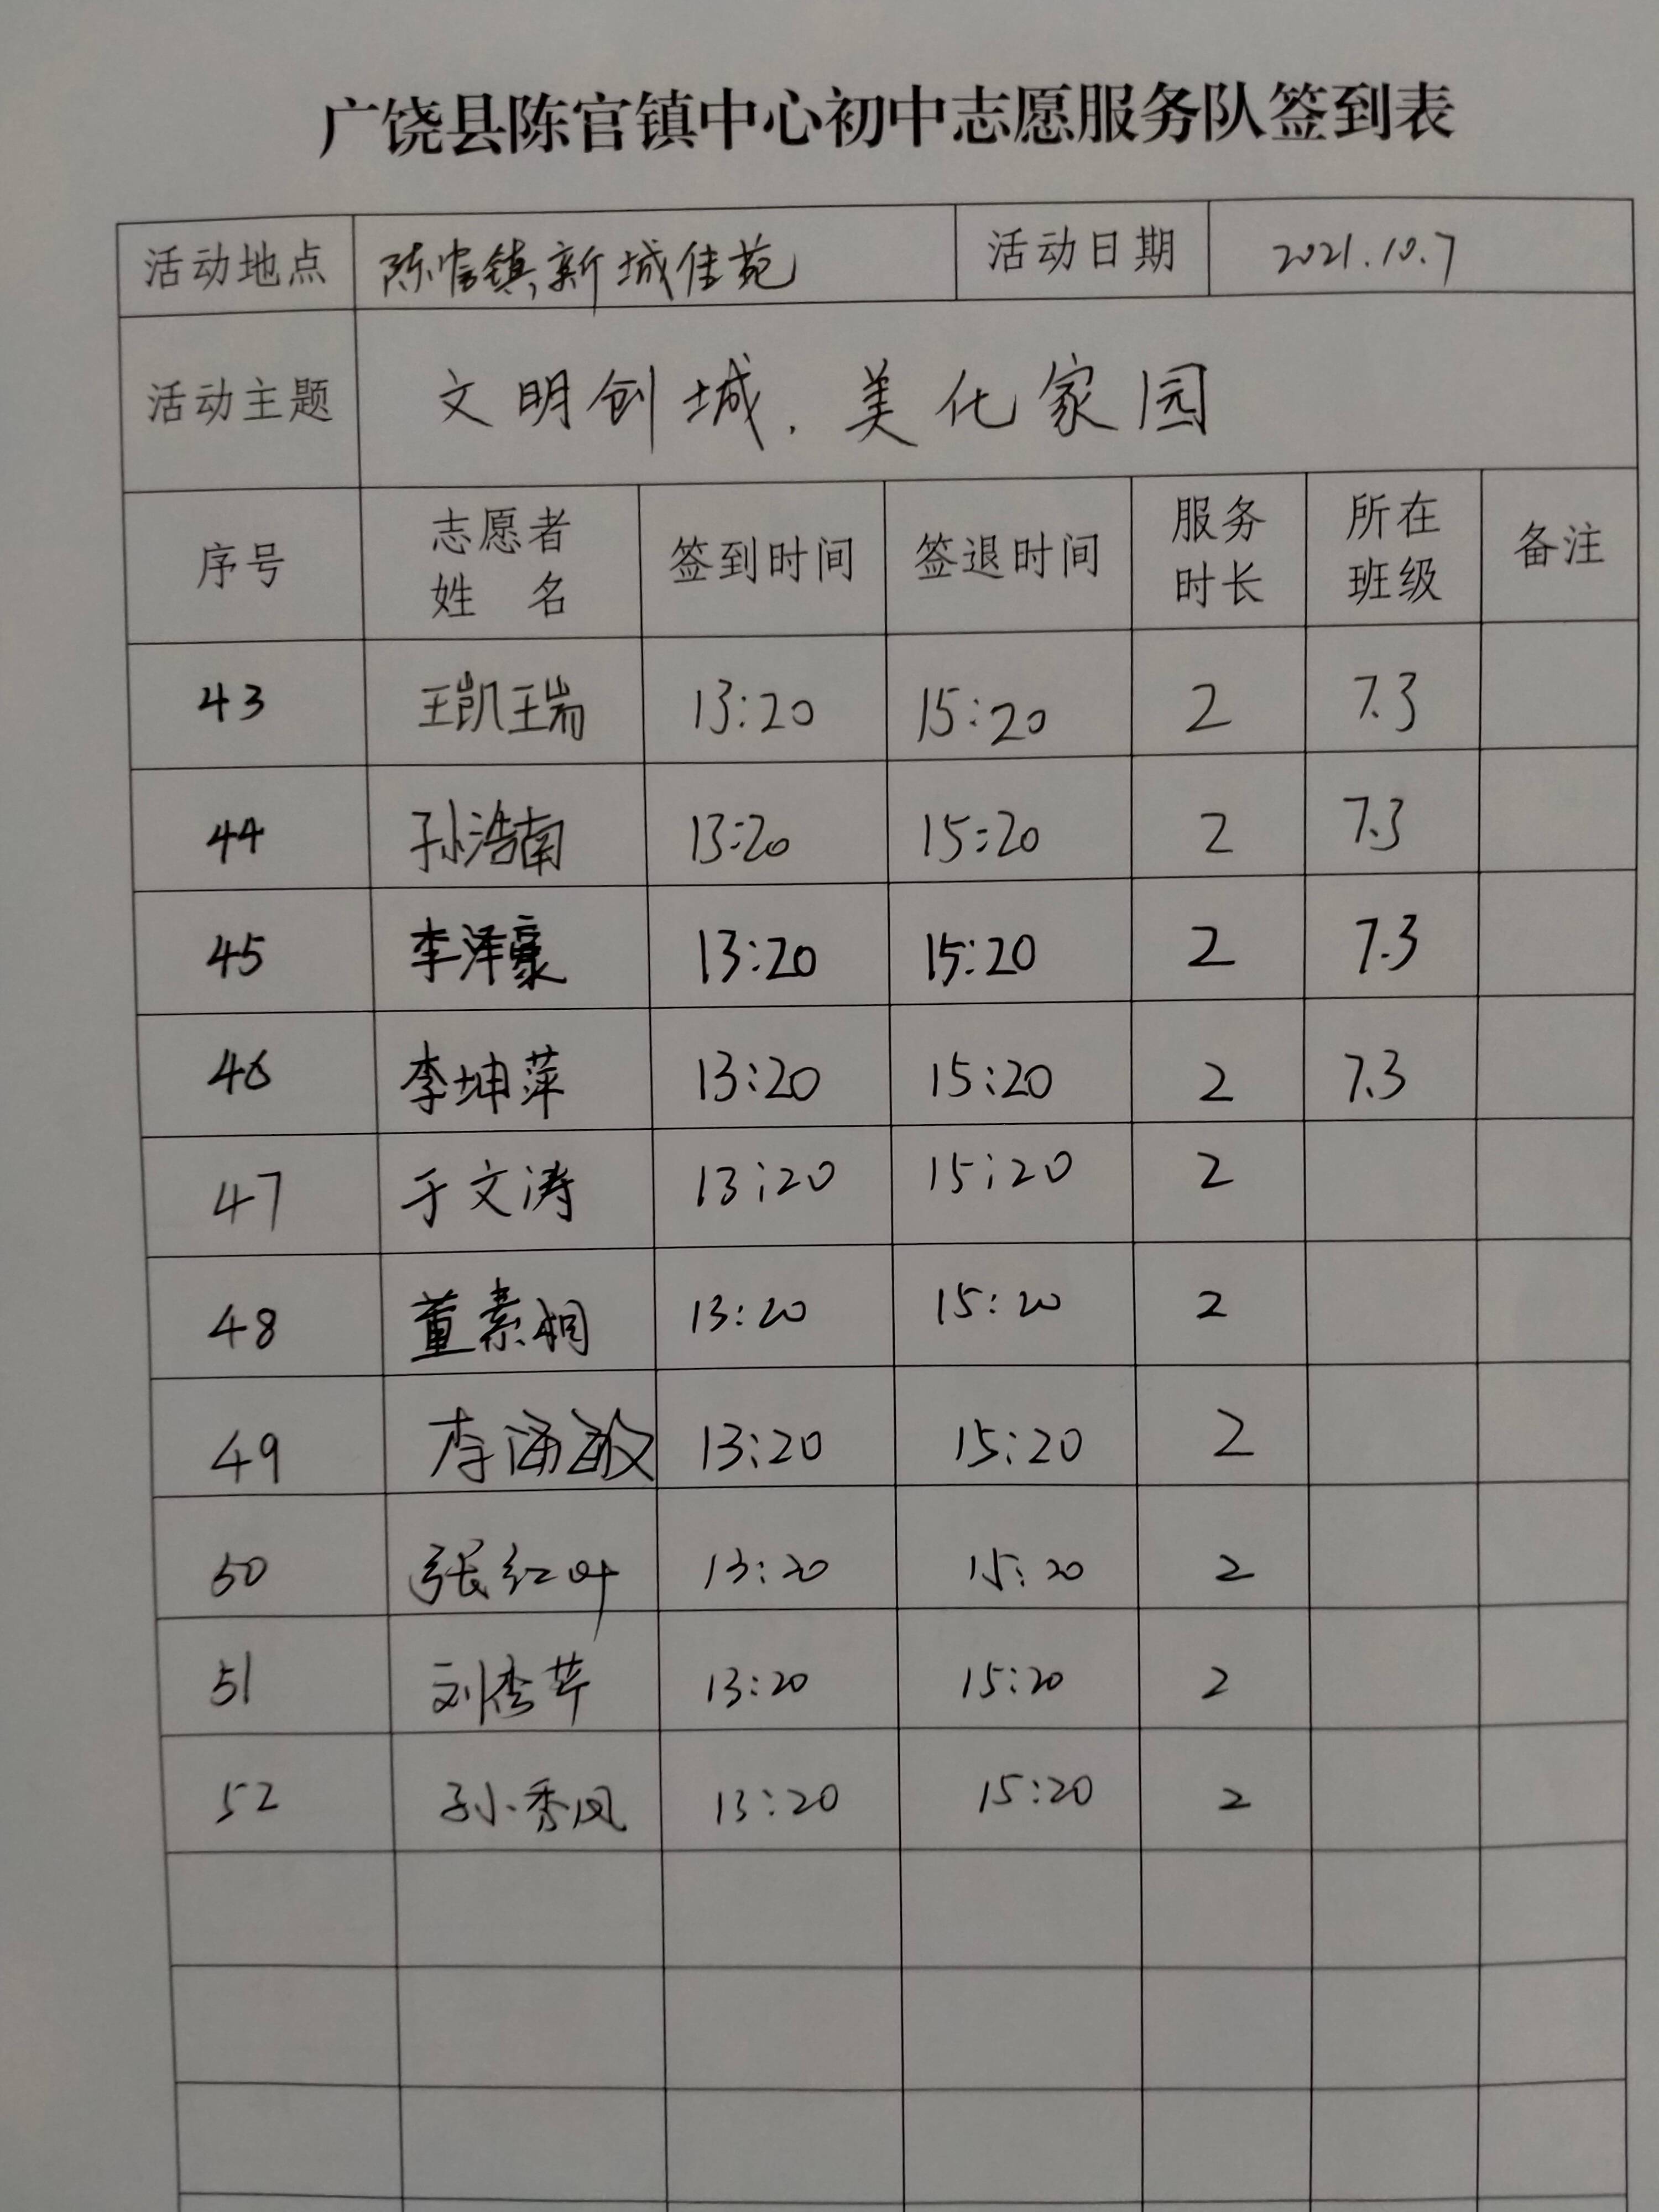 广饶县陈官镇中心初中志愿服务队签到表
活动地点 陈官镇新城佳苑 活动日期 2021.10.7
活动主题 文明创城,美化家园
序号 志愿者姓名 签到时间 签退时间 服务时长 所在班级 备注
43 王凯瑞 13:20 15:20 2 7.3
44 孙浩南 13:20 15:20 2 7.3
45 李泽豪 13:20 15:20 2 7.3
46 李坤萍 13:20 15:20 2 7.3
47 于文涛 13:20 15:20 2
48 董素娟 13:20 15:20 2
49 李海敏 13:20 15:20 2
50 张红叶 13:20 15:20 2
51 刘秀芹 13:20 15:20 2
52 孙秀凤 13:20 15:20 2